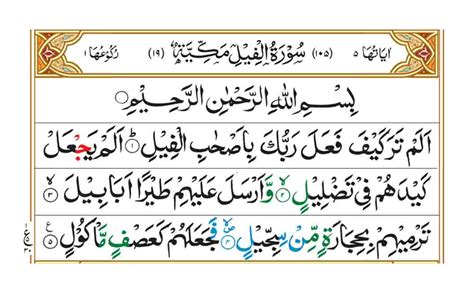 اٰیَاتُهَا ٥ (١٠٥) سُوْرَةُ الْفِیْلِ مَكِّیَّةٌ (١٩) رُكُوْعُهَا ١
بِسْمِ اللّٰهِ الرَّحْمٰنِ الرَّحِیْمِ
اَلَمْ تَرَ كَیْفَ فَعَلَ رَبُّكَ بِاَصْحٰبِ الْفِیْلِ ١ اَلَمْ یَجْعَلْ
كَیْدَهُمْ فِیْ تَضْلِیْلٍ ٢ وَّاَرْسَلَ عَلَیْهِمْ طَیْرًا اَبَابِیْلَ ٣
تَرْمِیْهِمْ بِحِجَارَةٍ مِّنْ سِجِّیْلٍ ٤ فَجَعَلَهُمْ كَعَصْفٍ مَّاْكُوْلٍ ٥